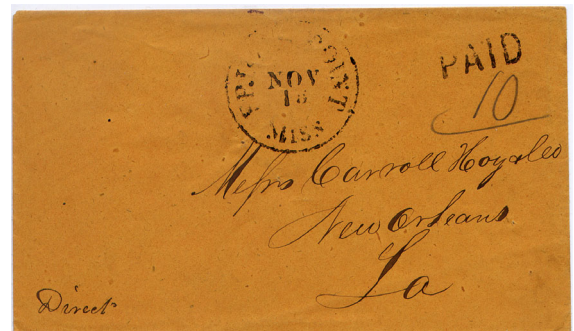 NOV
MISS
PAID
10
Messrs Carroll Hoy & Co
New Orleans
La
Direct